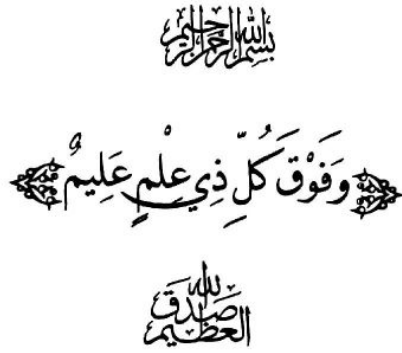 بسم الله الرحمن الرحيم
وَفَوْقَ كُلِّ ذِي عِلْمٍ عَلِيمٌ
صدق الله العظيم